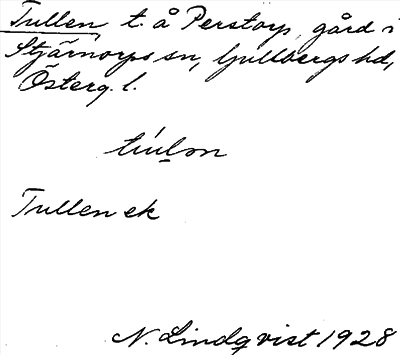 Tullen t. å Perstorp, gård i
Stjärnorps sn, Gullbergs hd,
Österg. l.
Tullen ek
N. Lindqvist 1928